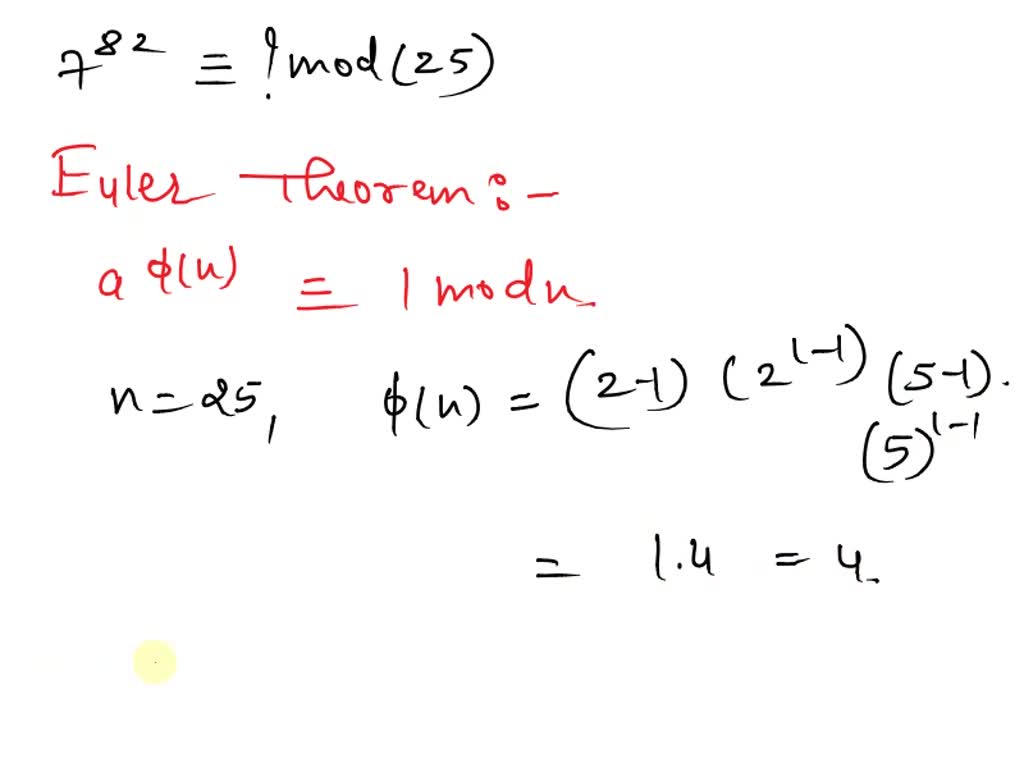 7^82 ≡ ? mod (25)
Euler Theorem :-
a^ϕ(n) ≡ 1 mod n.
n = 25, ϕ(n) = (2-1) (2^(1-1)) (5-1).
(5)^1-1
= 1.4 = 4.